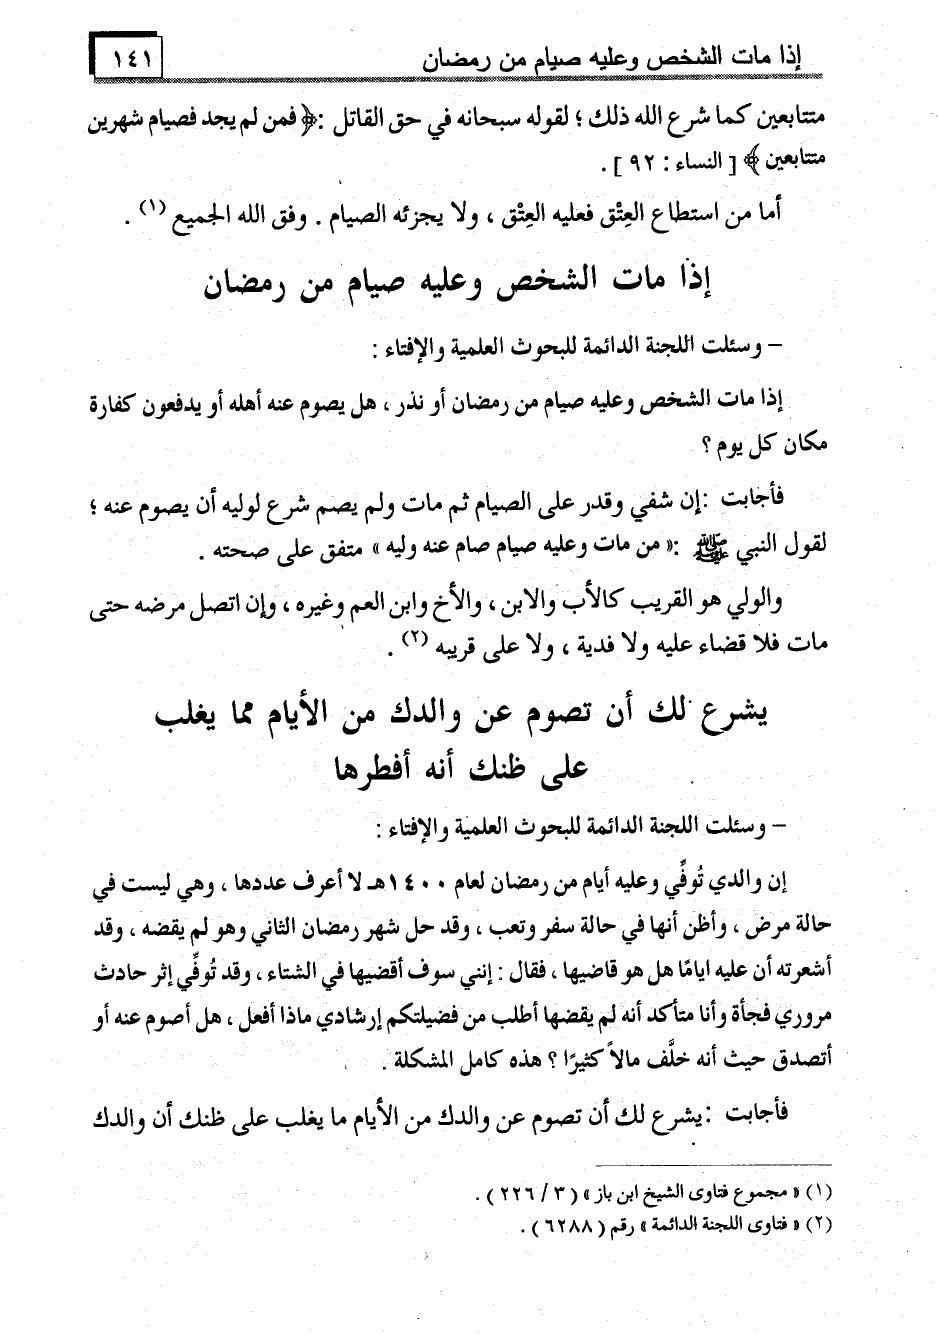 إذا مات الشخص وعليه صيام من رمضان
١٤١
متتابعين كما شرع الله ذلك ؛ لقوله سبحانه في حق القاتل : ﴿ فمن لم يجد فصيام شهرين
متتابعين ﴾ [ النساء : ٩٢ ] .
أما من استطاع العِتْق فعليه العِتْق ، ولا يجزئه الصيام . وفق الله الجميع (١) .
إذا مات الشخص وعليه صيام من رمضان
– وسئلت اللجنة الدائمة للبحوث العلمية والإفتاء :
إذا مات الشخص وعليه صيام من رمضان أو نذر ، هل يصوم عنه أهله أو يدفعون كفارة
مكان كل يوم ؟
فأجابت : إن شفي وقدر على الصيام ثم مات ولم يصم شرع لوليه أن يصوم عنه ؛
لقول النبي ﷺ : « من مات وعليه صيام صام عنه وليه » متفق على صحته .
والولي هو القريب كالأب والابن ، والأخ وابن العم وغيره ، وإن اتصل مرضه حتى
مات فلا قضاء عليه ولا فدية ، ولا على قريبه (٢) .
يشرع لك أن تصوم عن والدك من الأيام مما يغلب
على ظنك أنه أفطرها
– وسئلت اللجنة الدائمة للبحوث العلمية والإفتاء :
إن والدي تُوفِّي وعليه أيام من رمضان لعام ١٤٠٠هـ لا أعرف عددها ، وهي ليست في
حالة مرض ، وأظن أنها في حالة سفر وتعب ، وقد حل شهر رمضان الثاني وهو لم يقضه ، وقد
أشعرته أن عليه ايامًا هل هو قاضيها ، فقال : إنني سوف أقضيها في الشتاء ، وقد تُوفِّي إثر حادث
مروري فجأة وأنا متأكد أنه لم يقضها أطلب من فضيلتكم إرشادي ماذا أفعل ، هل أصوم عنه أو
أتصدق حيث أنه خلَّف مالاً كثيرًا ؟ هذه كامل المشكلة .
فأجابت : يشرع لك أن تصوم عن والدك من الأيام ما يغلب على ظنك أن والدك
(١) « مجموع فتاوى الشيخ ابن باز » ( ٣ / ٢٢٦ ) .
(٢) « فتاوى اللجنة الدائمة » رقم ( ٦٢٨٨ ) .